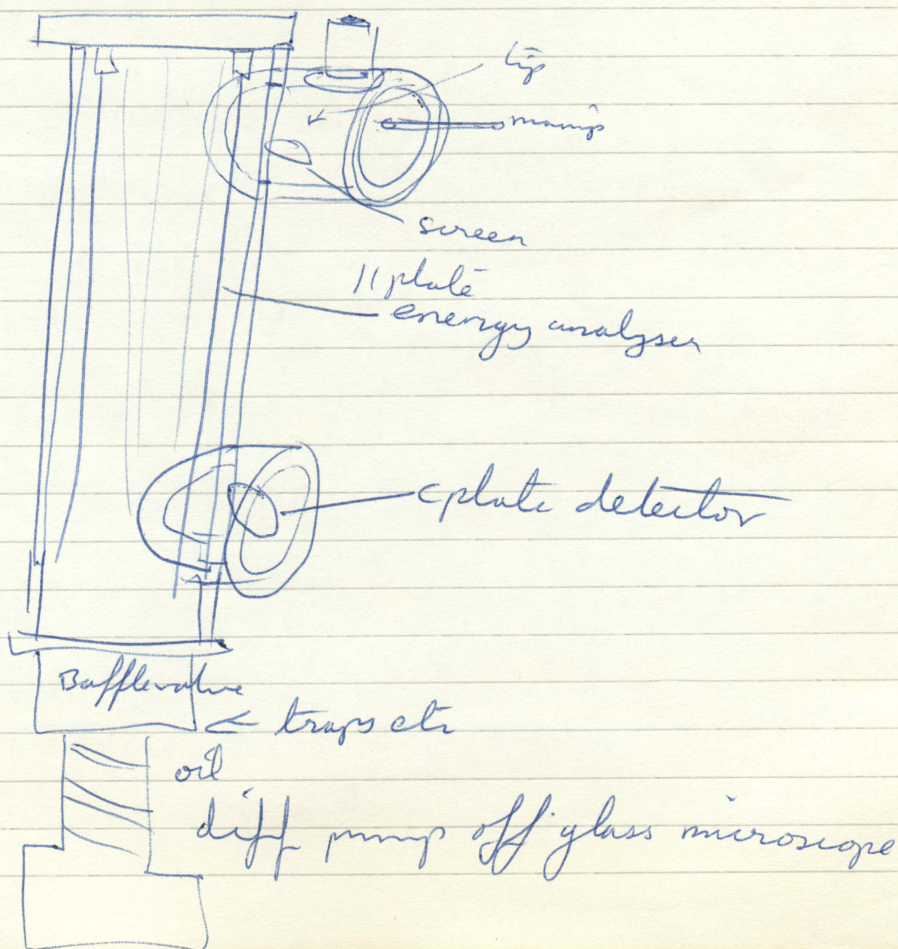 tip
manip
screen
// plate
energy analyser
cplate detector
Bafflevalve
← traps etc
oil
diff pump off glass microscope